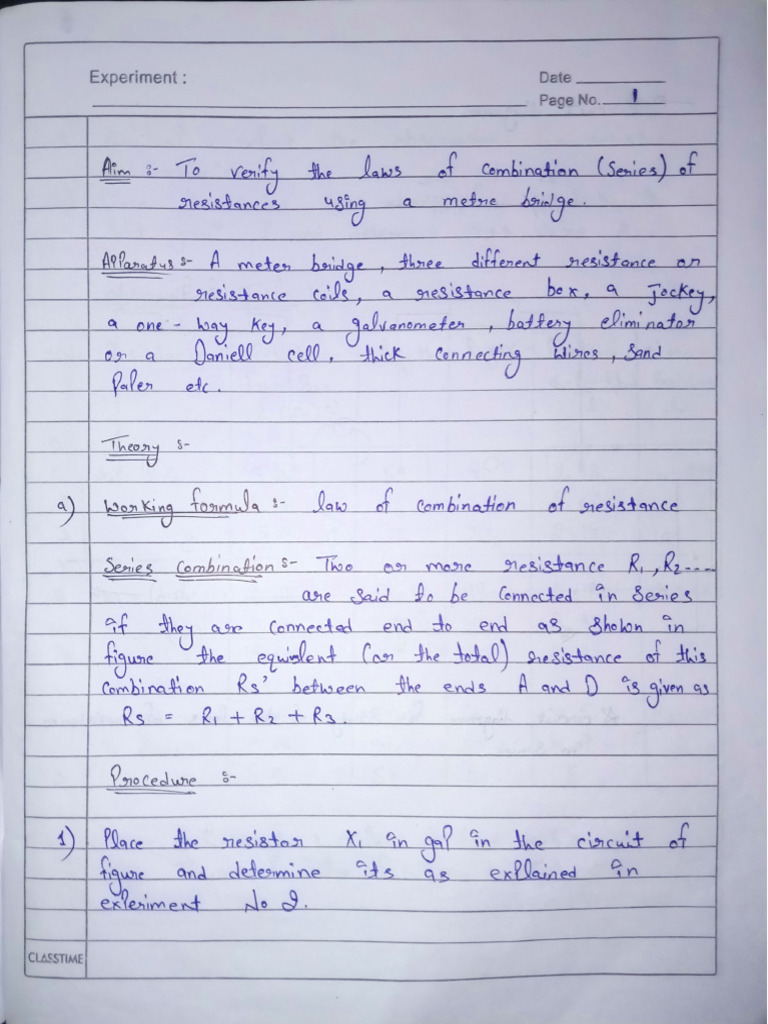 Experiment :
Date
Page No. 1
Aim :- To verify the laws of combination (series) of
resistances using a metre bridge.
Apparatus :- A meter bridge, three different resistance or
resistance coils, a resistance box, a jockey,
a one-way key, a galvanometer, battery eliminator
or a Daniell cell, thick connecting wires, sand
paper etc.
Theory :-
a) Working formula :- law of combination of resistance
Series Combination :- Two or more resistance R1, R2....
are said to be connected in series
if they are connected end to end as shown in
figure the equivlent (or the total) resistance of this
combination Rs' between the ends A and D is given as
Rs = R1 + R2 + R3.
Procedure :-
1) Place the resistor X1 in gap in the circuit of
figure and determine its as explained in
experiment No
CLASSTIME